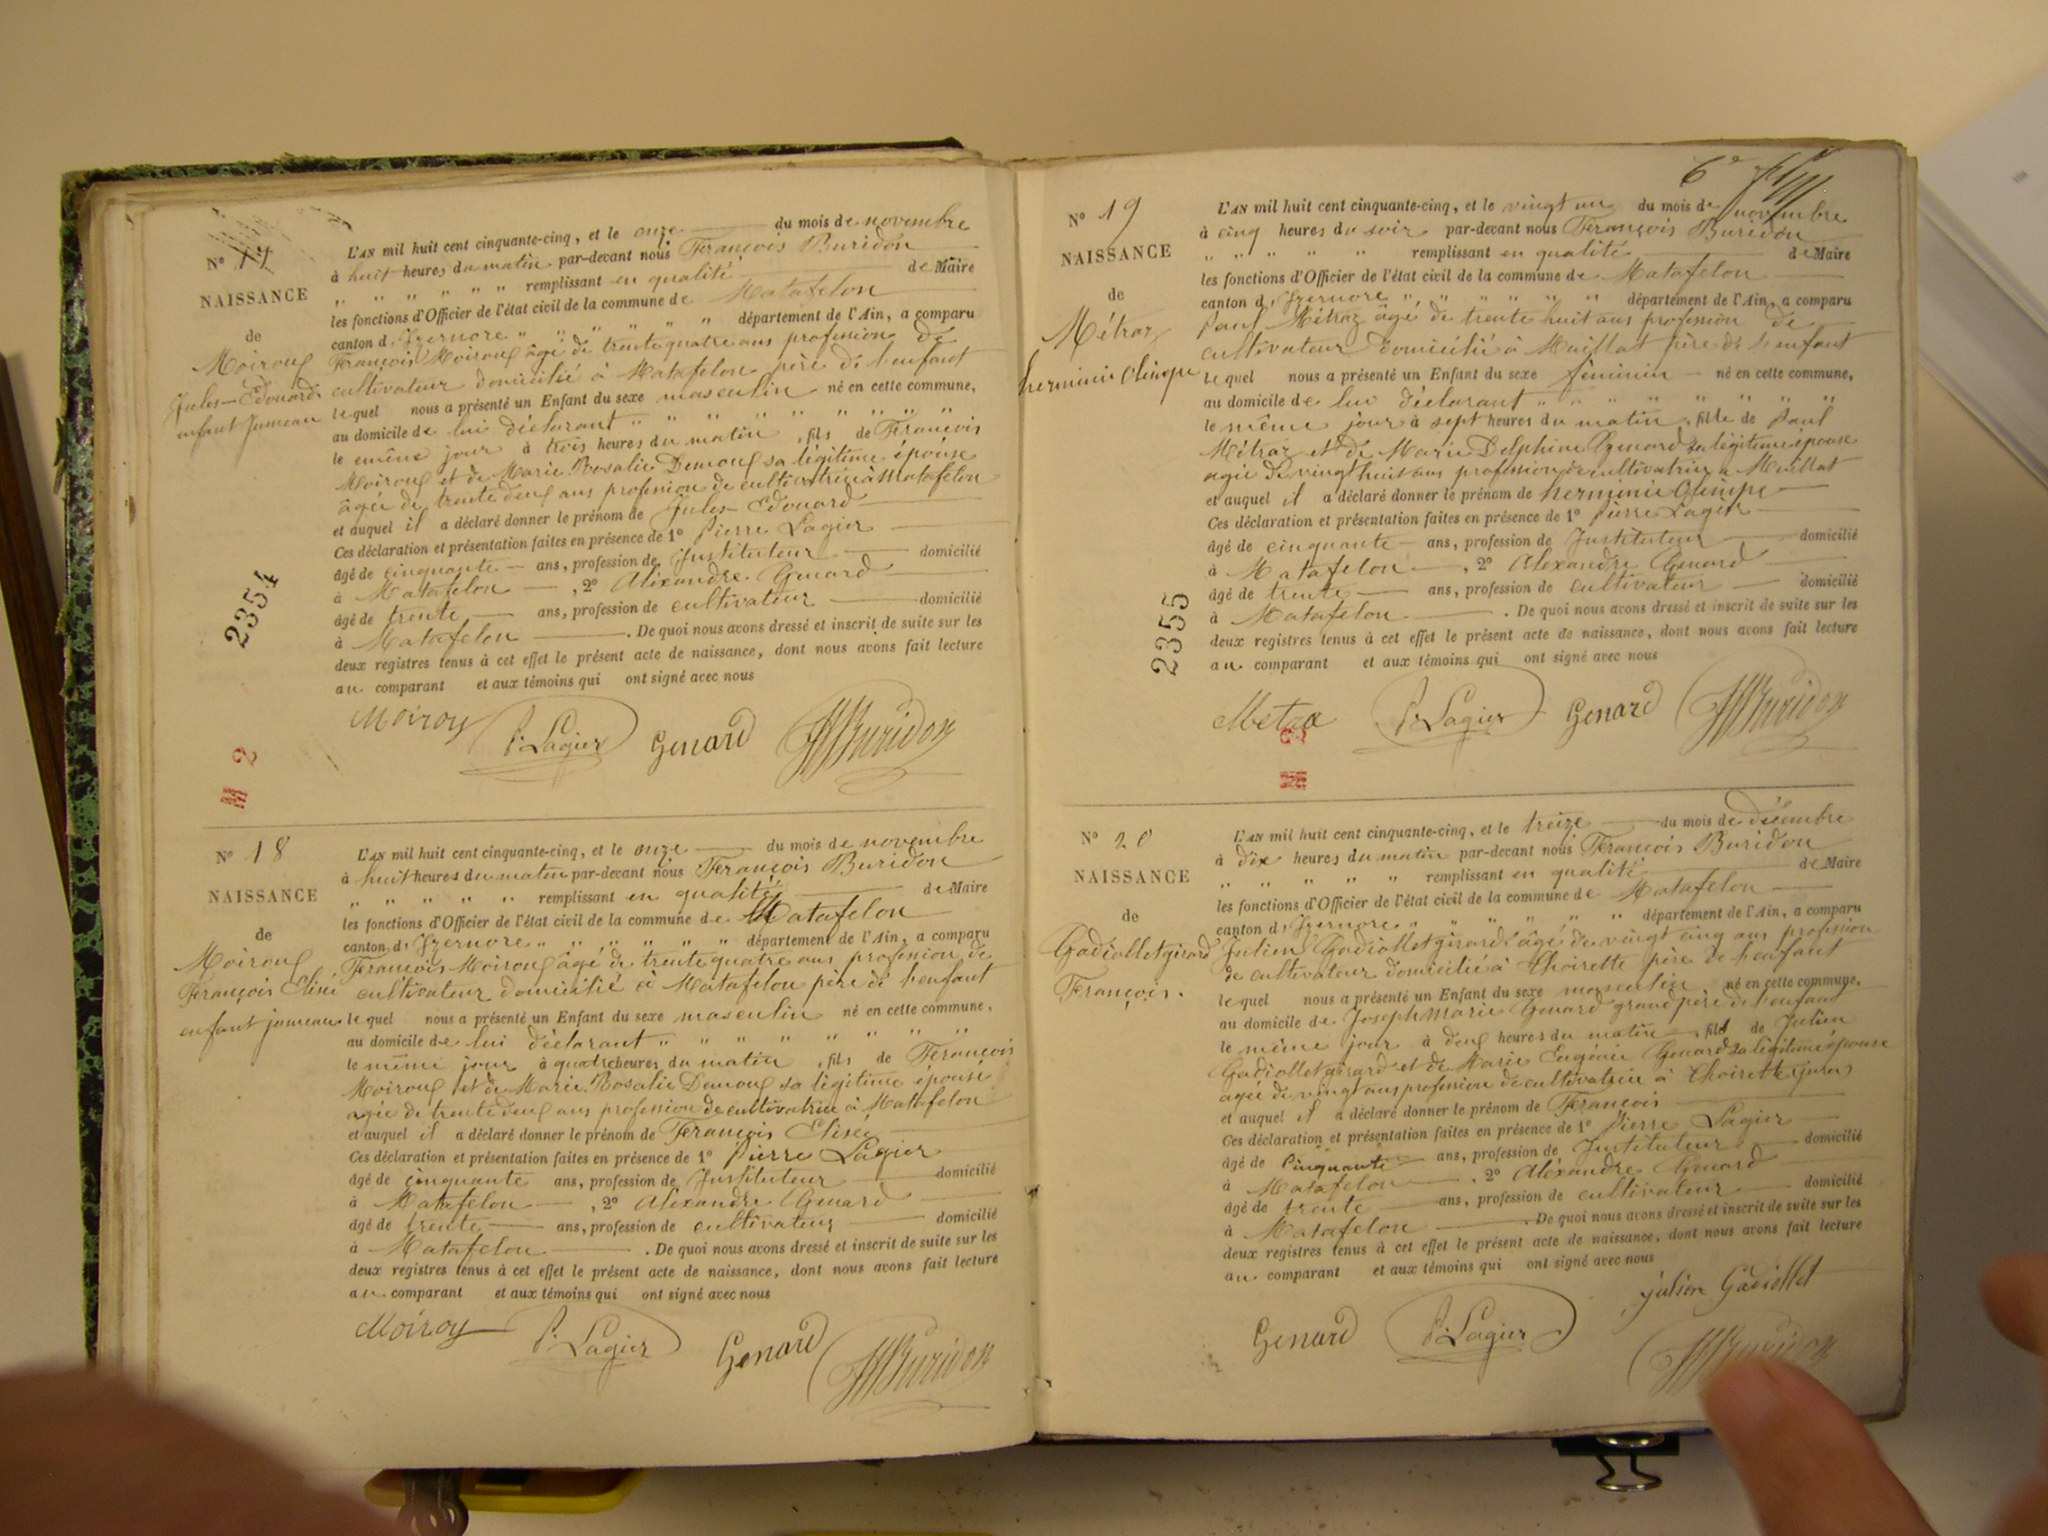 N° 17
NAISSANCE
de
Moiroux
Jules-Edouard
enfant Jumeau
L'AN mil huit cent cinquante-cinq, et le onze du mois de novembre
à huit heures du matin par-devant nous François Buridon
" " " " " " remplissant en qualité de Maire
les fonctions d'Officier de l'état civil de la commune de Matafelon
canton d'Izernore " " " " " département de l'Ain, a comparu
François Moiroux âgé de trente quatre ans profession de
cultivateur domicilié à Matafelon père de l'enfant
lequel nous a présenté un Enfant du sexe masculin né en cette commune,
au domicile de lui déclarant " " " " " " " "
le même jour à trois heures du matin, fils de François
Moiroux et de Marie Rosalie Demoux sa légitime épouse
âgée de trente deux ans profession de cultivatrice à Matafelon
et auquel il a déclaré donner le prénom de Jules-Edouard
Ces déclaration et présentation faites en présence de 1° Pierre Lagier
âgé de cinquante ans, profession de Instituteur domicilié
à Matafelon, 2° Alexandre Genard
âgé de trente ans, profession de cultivateur domicilié
à Matafelon. De quoi nous avons dressé et inscrit de suite sur les
deux registres tenus à cet effet le présent acte de naissance, dont nous avons fait lecture
au comparant et aux témoins qui ont signé avec nous
Moiroux P. Lagier Genard Buridon
2354
2
N° 18
NAISSANCE
de
Moiroux
François Elisé
enfant jumeau
L'AN mil huit cent cinquante-cinq, et le onze du mois de novembre
à huit heures du matin par-devant nous François Buridon
" " " " " remplissant en qualité de Maire
les fonctions d'Officier de l'état civil de la commune de Matafelon
canton d'Izernore " " " " " " département de l'Ain, a comparu
François Moiroux âgé de trente quatre ans profession de
cultivateur domicilié à Matafelon père de l'enfant
lequel nous a présenté un Enfant du sexe masculin né en cette commune,
au domicile de lui déclarant " " " " " " " "
le même jour à quatre heures du matin, fils de François
Moiroux et de Marie Rosalie Demoux sa légitime épouse
agée de trente deux ans profession de cultivatrice à Matafelon
et auquel il a déclaré donner le prénom de François Elisée
Ces déclaration et présentation faites en présence de 1° Pierre Lagier
âgé de cinquante ans, profession de Instituteur domicilié
à Matafelon, 2° Alexandre Genard
âgé de trente ans, profession de cultivateur domicilié
à Matafelon. De quoi nous avons dressé et inscrit de suite sur les
deux registres tenus à cet effet le présent acte de naissance, dont nous avons fait lecture
au comparant et aux témoins qui ont signé avec nous
Moiroux P. Lagier Genard Buridon
6e
N° 19
NAISSANCE
de
Métraz
herminie Olimpe
L'AN mil huit cent cinquante-cinq, et le vingt un du mois de novembre
à cinq heures du soir par-devant nous François Buridon
" " " " " remplissant en qualité de Maire
les fonctions d'Officier de l'état civil de la commune de Matafelon
canton d'Izernore " " " " " " département de l'Ain, a comparu
Paul Métraz âgé de trente huit ans profession de
cultivateur domicilié à Maillat père de l'enfant
lequel nous a présenté un Enfant du sexe féminin né en cette commune,
au domicile de lui déclarant " " " " " " "
le même jour à sept heures du matin, fille de Paul
Métraz et de Marie Delphine Genard sa légitime épouse
agée de vingt huit ans profession de cultivatrice à Maillat
et auquel il a déclaré donner le prénom de herminie Olimpe
Ces déclaration et présentation faites en présence de 1° Pierre Lagier
âgé de cinquante ans, profession de Instituteur domicilié
à Matafelon, 2° Alexandre Genard
âgé de trente ans, profession de cultivateur domicilié
à Matafelon. De quoi nous avons dressé et inscrit de suite sur les
deux registres tenus à cet effet le présent acte de naissance, dont nous avons fait lecture
au comparant et aux témoins qui ont signé avec nous
Metra P. Lagier Genard Buridon
2355
N° 20
NAISSANCE
de
Gadiolletgirard
François.
L'AN mil huit cent cinquante-cinq, et le treize du mois de décembre
à dix heures du matin par-devant nous François Buridon
" " " " " remplissant en qualité de Maire
les fonctions d'Officier de l'état civil de la commune de Matafelon
canton d'Izernore " " " " " " département de l'Ain, a comparu
Julien Gadiolletgirard âgé de vingt cinq ans profession
de cultivateur domicilié à Thoirette père de l'enfant
lequel nous a présenté un Enfant du sexe masculin né en cette commune,
au domicile de Joseph Marie Genard grand père de l'enfant
le même jour à deux heures du matin, fils de Julien
Gadiolletgirard et de Marie Eugénie Genard sa légitime épouse
agée de vingt ans profession de cultivatrice à Thoirette (jura)
et auquel il a déclaré donner le prénom de François
Ces déclaration et présentation faites en présence de 1° Pierre Lagier
âgé de Cinquante ans, profession de Instituteur domicilié
à Matafelon, 2° Alexandre Genard
âgé de trente ans, profession de cultivateur domicilié
à Matafelon. De quoi nous avons dressé et inscrit de suite sur les
deux registres tenus à cet effet le présent acte de naissance, dont nous avons fait lecture
au comparant et aux témoins qui ont signé avec nous
julien Gadiollet
Genard P. Lagier Buridon